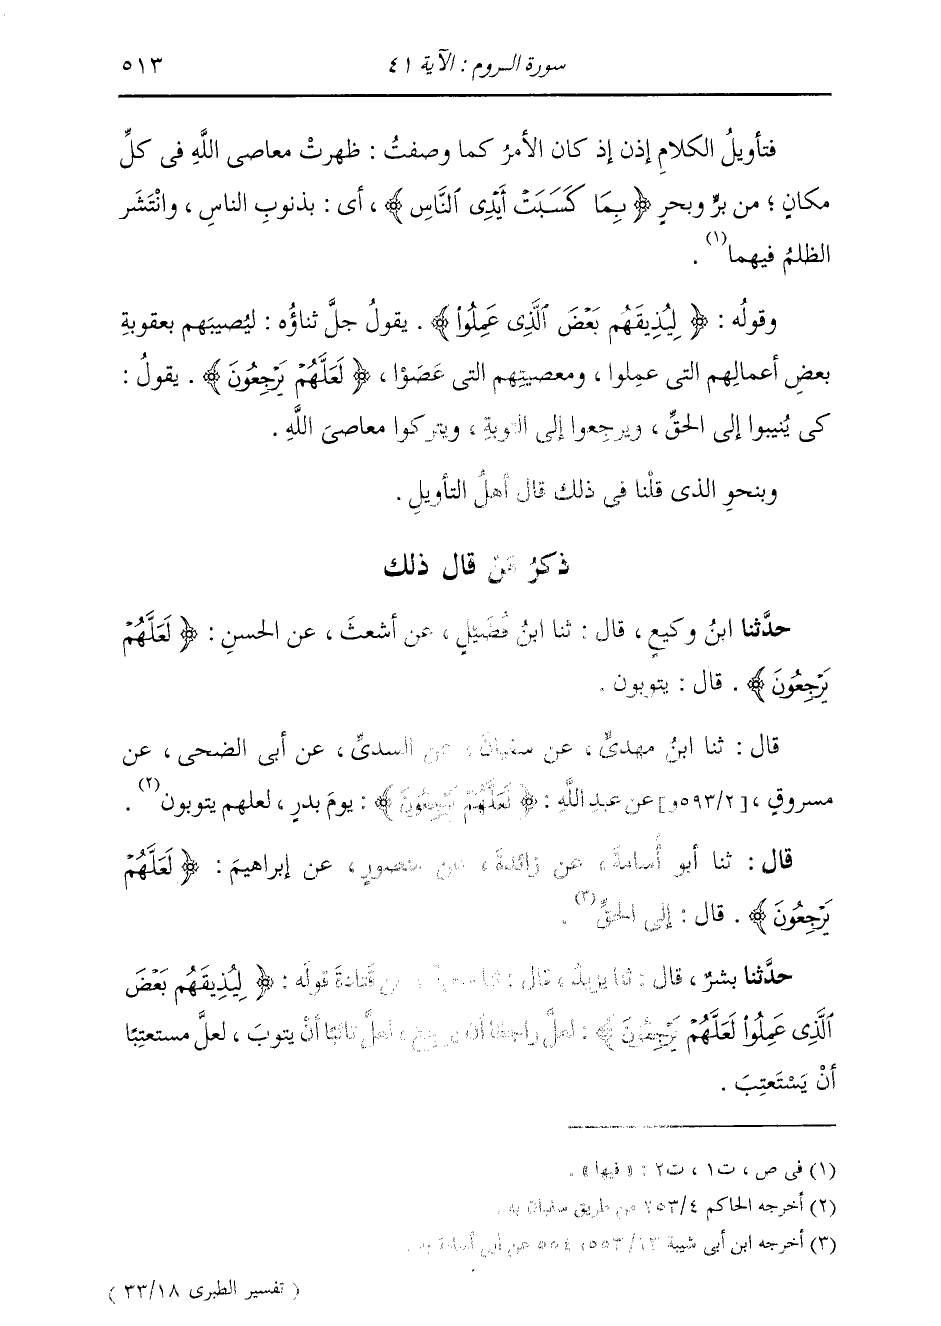 سورة الـروم : الآية ٤١ ٥١٣
فتأويلُ الكلامِ إذن إذ كان الأمرُ كما وصفتُ : ظهرتْ معاصى اللَّهِ فى كلِّ
مكانٍ ؛ من برٍّ وبحرٍ ﴿ بِمَا كَسَبَتْ أَيْدِى ٱلنَّاسِ ﴾ ، أى : بذنوبِ الناسِ ، وانْتَشَر
الظلمُ فيهما(١) .
وقولُه : ﴿ لِيُذِيقَهُم بَعْضَ ٱلَّذِى عَمِلُواْ ﴾ . يقولُ جلَّ ثناؤُه : ليُصيبَهم بعقوبةِ
بعضِ أعمالِهم التى عمِلوا ، ومعصيتِهم التى عَصَوْا ، ﴿ لَعَلَّهُمْ يَرْجِعُونَ ﴾ . يقولُ :
كى يُنيبوا إلى الحقِّ ، ويرجِعوا إلى التوبةِ ، ويتركوا معاصىَ اللَّهِ .
وبنحوِ الذى قلْنا فى ذلك قال أهلُ التأويلِ .
ذكرُ مَنْ قال ذلك
حدَّثنا ابنُ وكيعٍ ، قال : ثنا ابنُ فُضَيْلٍ ، عن أشعثَ ، عن الحسنِ : ﴿ لَعَلَّهُمْ
يَرْجِعُونَ ﴾ . قال : يتوبون .
قال : ثنا ابنُ مهدىٍّ ، عن سفيانَ ، عن السدىِّ ، عن أبى الضحى ، عن
مسروقٍ ، [٥٩٣/٢و] عن عبدِ اللَّهِ : ﴿ لَعَلَّهُمْ يَرْجِعُونَ ﴾ : يومَ بدرٍ ، لعلهم يتوبون(٢) .
قال : ثنا أبو أسامةَ ، عن زائدةَ ، عن منصورٍ ، عن إبراهيمَ : ﴿ لَعَلَّهُمْ
يَرْجِعُونَ ﴾ . قال : إلى الحقِّ(٣) .
حدَّثنا بشرٌ ، قال : ثنا يزيدُ ، قال : ثنا سعيدٌ ، عن قتادةَ قولَه : ﴿ لِيُذِيقَهُم بَعْضَ
ٱلَّذِى عَمِلُواْ لَعَلَّهُمْ يَرْجِعُونَ ﴾ : لعلَّ راجعًا أن يرجِعَ ، لعلَّ تائبًا أنْ يتوبَ ، لعلَّ مستعتِبًا
أنْ يَسْتَعتِبَ .
(١) فى ص ، ت١ ، ت٢ : « فيها » .
(٢) أخرجه الحاكم ٢٥٣/٤ من طريق سفيان به .
(٣) أخرجه ابن أبى شيبة ١٣/ ٥٥٣، ٥٥٤ عن أبى أسامة به .
( تفسير الطبرى ٣٣/١٨ )